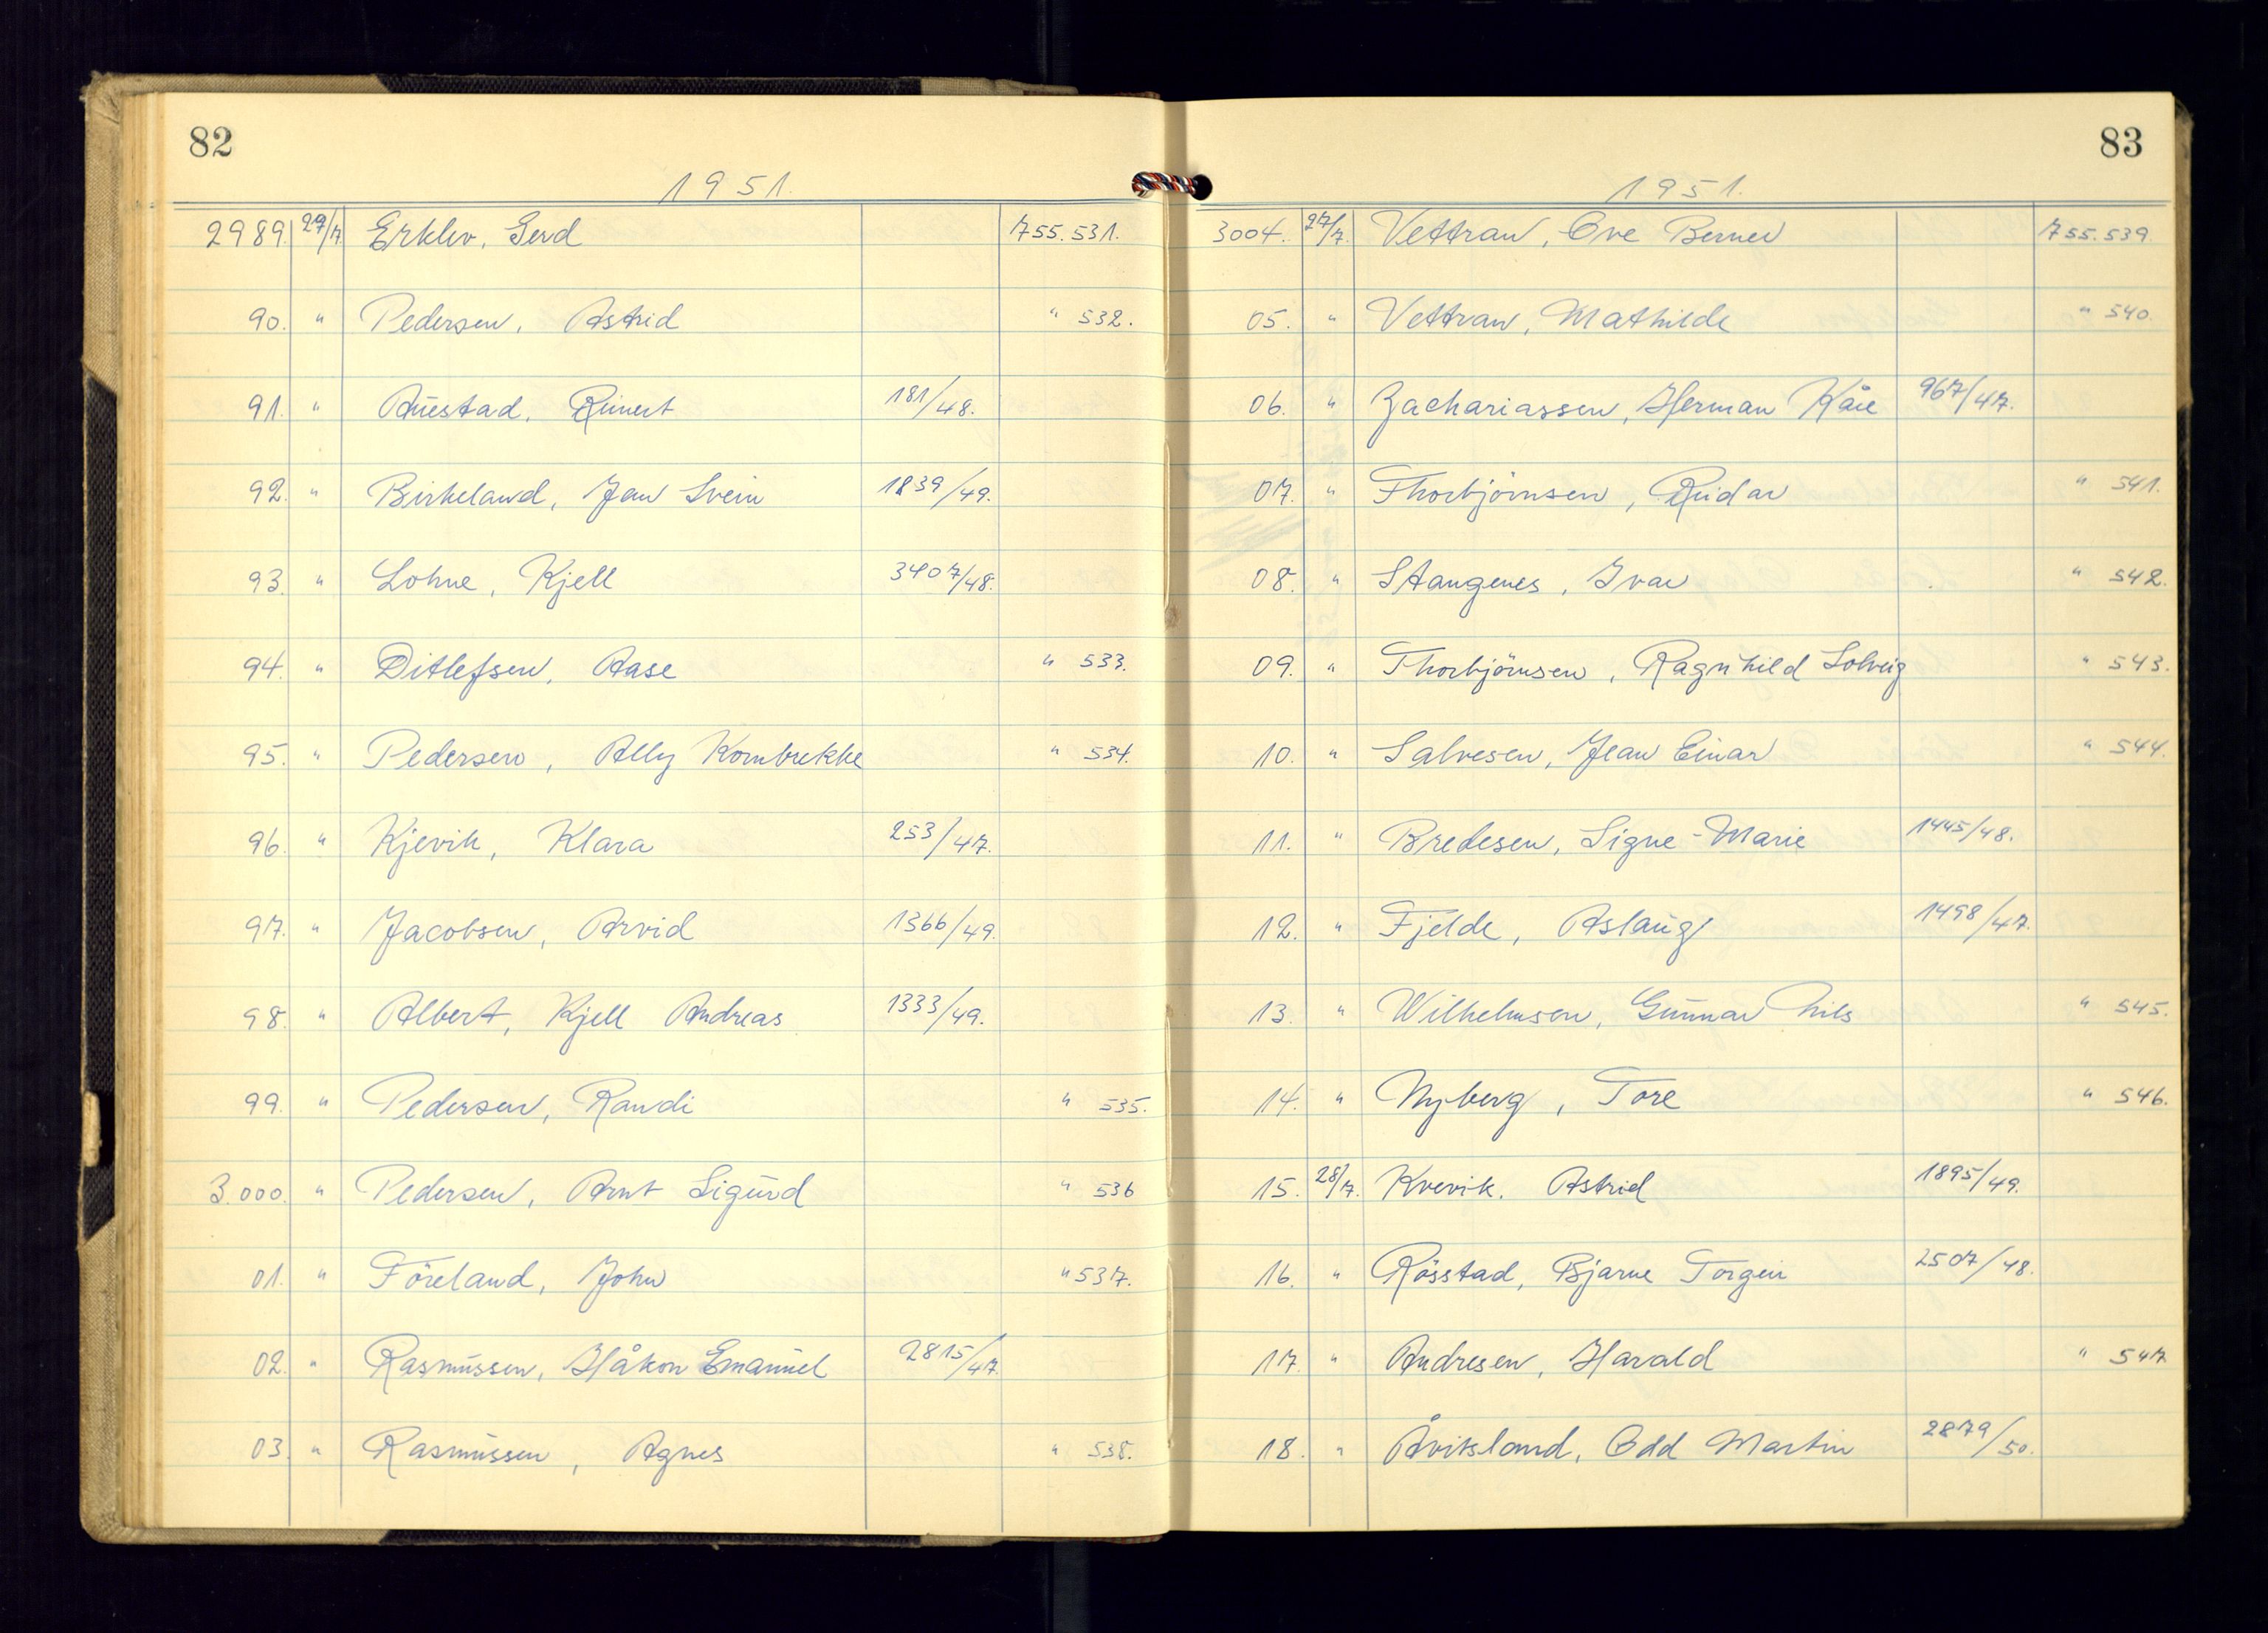 82
1951.
2989. 27/7. Erklev, Gerd 755.531.
90. " Pedersen, Astrid " 532.
91. " Austad, Reinert 181/48.
92. " Birkeland, Jan Svein 1839/49.
93. " Lohne, Kjell 3407/48.
94. " Ditlefsen, Aase " 533.
95. " Pedersen, Ally Kornbrekke " 534.
96. " Kjevik, Klara 253/47.
97. " Jacobsen, Arvid 1366/49.
98. " Albert, Kjell Andreas 1333/49.
99. " Pedersen, Randi " 535.
3.000. " Pedersen, Arnt Sigurd " 536
01. " Föreland, John " 537.
02. " Rasmussen, Håkon Emanuel 2815/47.
03. " Rasmussen, Agnes " 538.
83
1951.
3004. 27/7. Vettran, Ove Berner 755.539.
05. " Vettran, Mathilde " 540.
06. " Zachariassen, Herman Kåre 967/47.
07. " Thorbjörnsen, Reidar " 541.
08. " Stangenes, Ivar " 542.
09. " Thorbjörnsen, Ragnhild Solveig " 543.
10. " Salvesen, Jean Einar " 544.
11. " Bredesen, Signe-Marie 1445/48.
12. " Fjelde, Aslaug 1498/47.
13. " Wilhelmsen, Gunnar Nils " 545.
14. " Nyberg, Tore " 546.
15. 28/7. Kvevik. Astrid 1895/49.
16. " Rösstad, Bjarne Torgeir 2507/48.
17. " Andresen, Harald " 547
18. " Åvitsland, Odd Martin 2879/50.